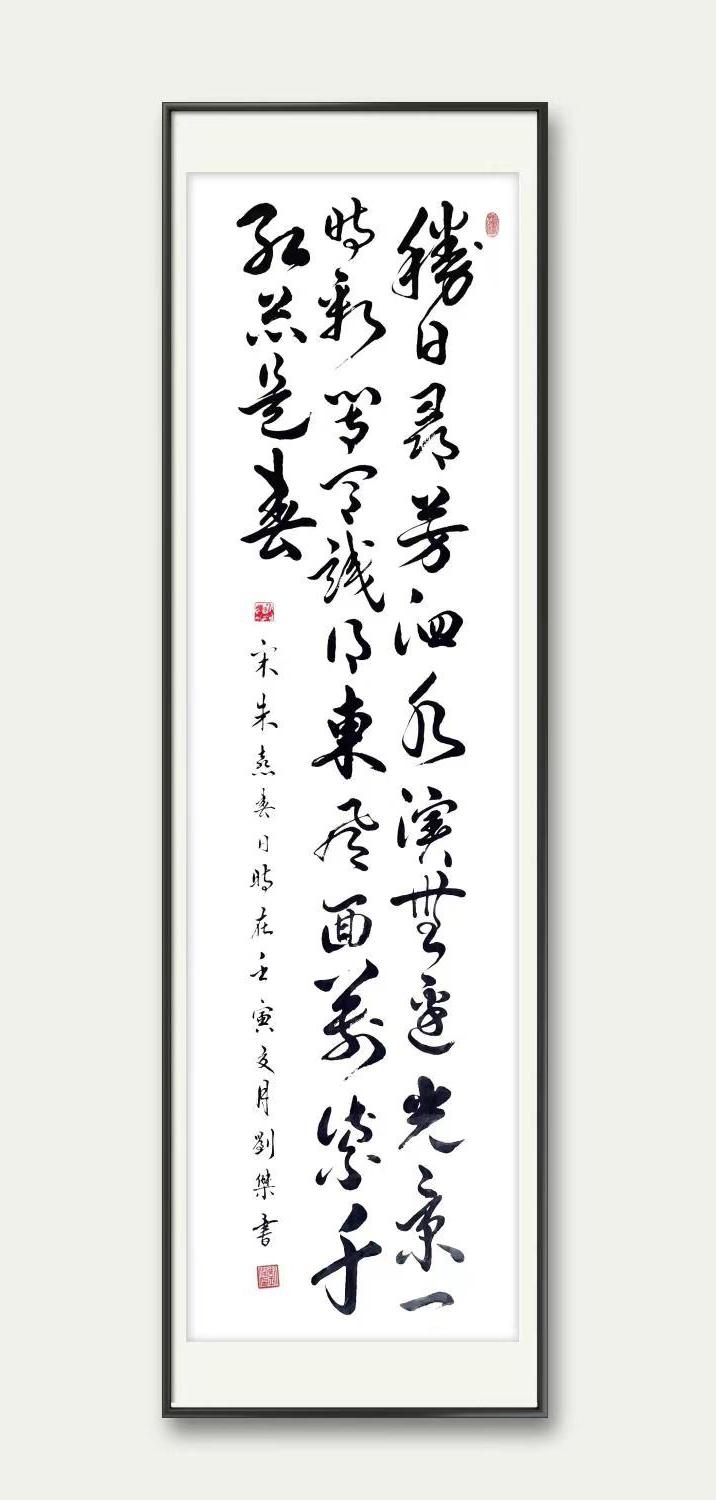 勝日尋芳泗水濱無邊光景一
時新等閒識得東風面萬紫千
紅總是春
宋朱熹春日時在壬寅夏月劉傑書